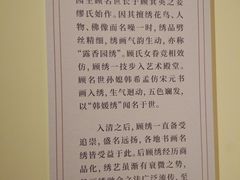 园主顾名世长子顾箕英之妾
缪氏始作。因其擅绣花鸟、人
物、佛像而名噪一时，绣品劈
丝精细，绣画气韵生动，亦称
“露香园绣”。顾氏女眷竞相效
仿，顾绣一技步入艺术殿堂。
顾名世孙媳韩希孟仿宋元书
画入绣，生气迥动，五色斓发，
以“韩媛绣”闻名于世。
入清之后，顾绣一直备受
追崇，盛名远扬，各地书画名
绣皆受益于此。后顾绣经历商
品化，绣艺虽渐有衰微之势，